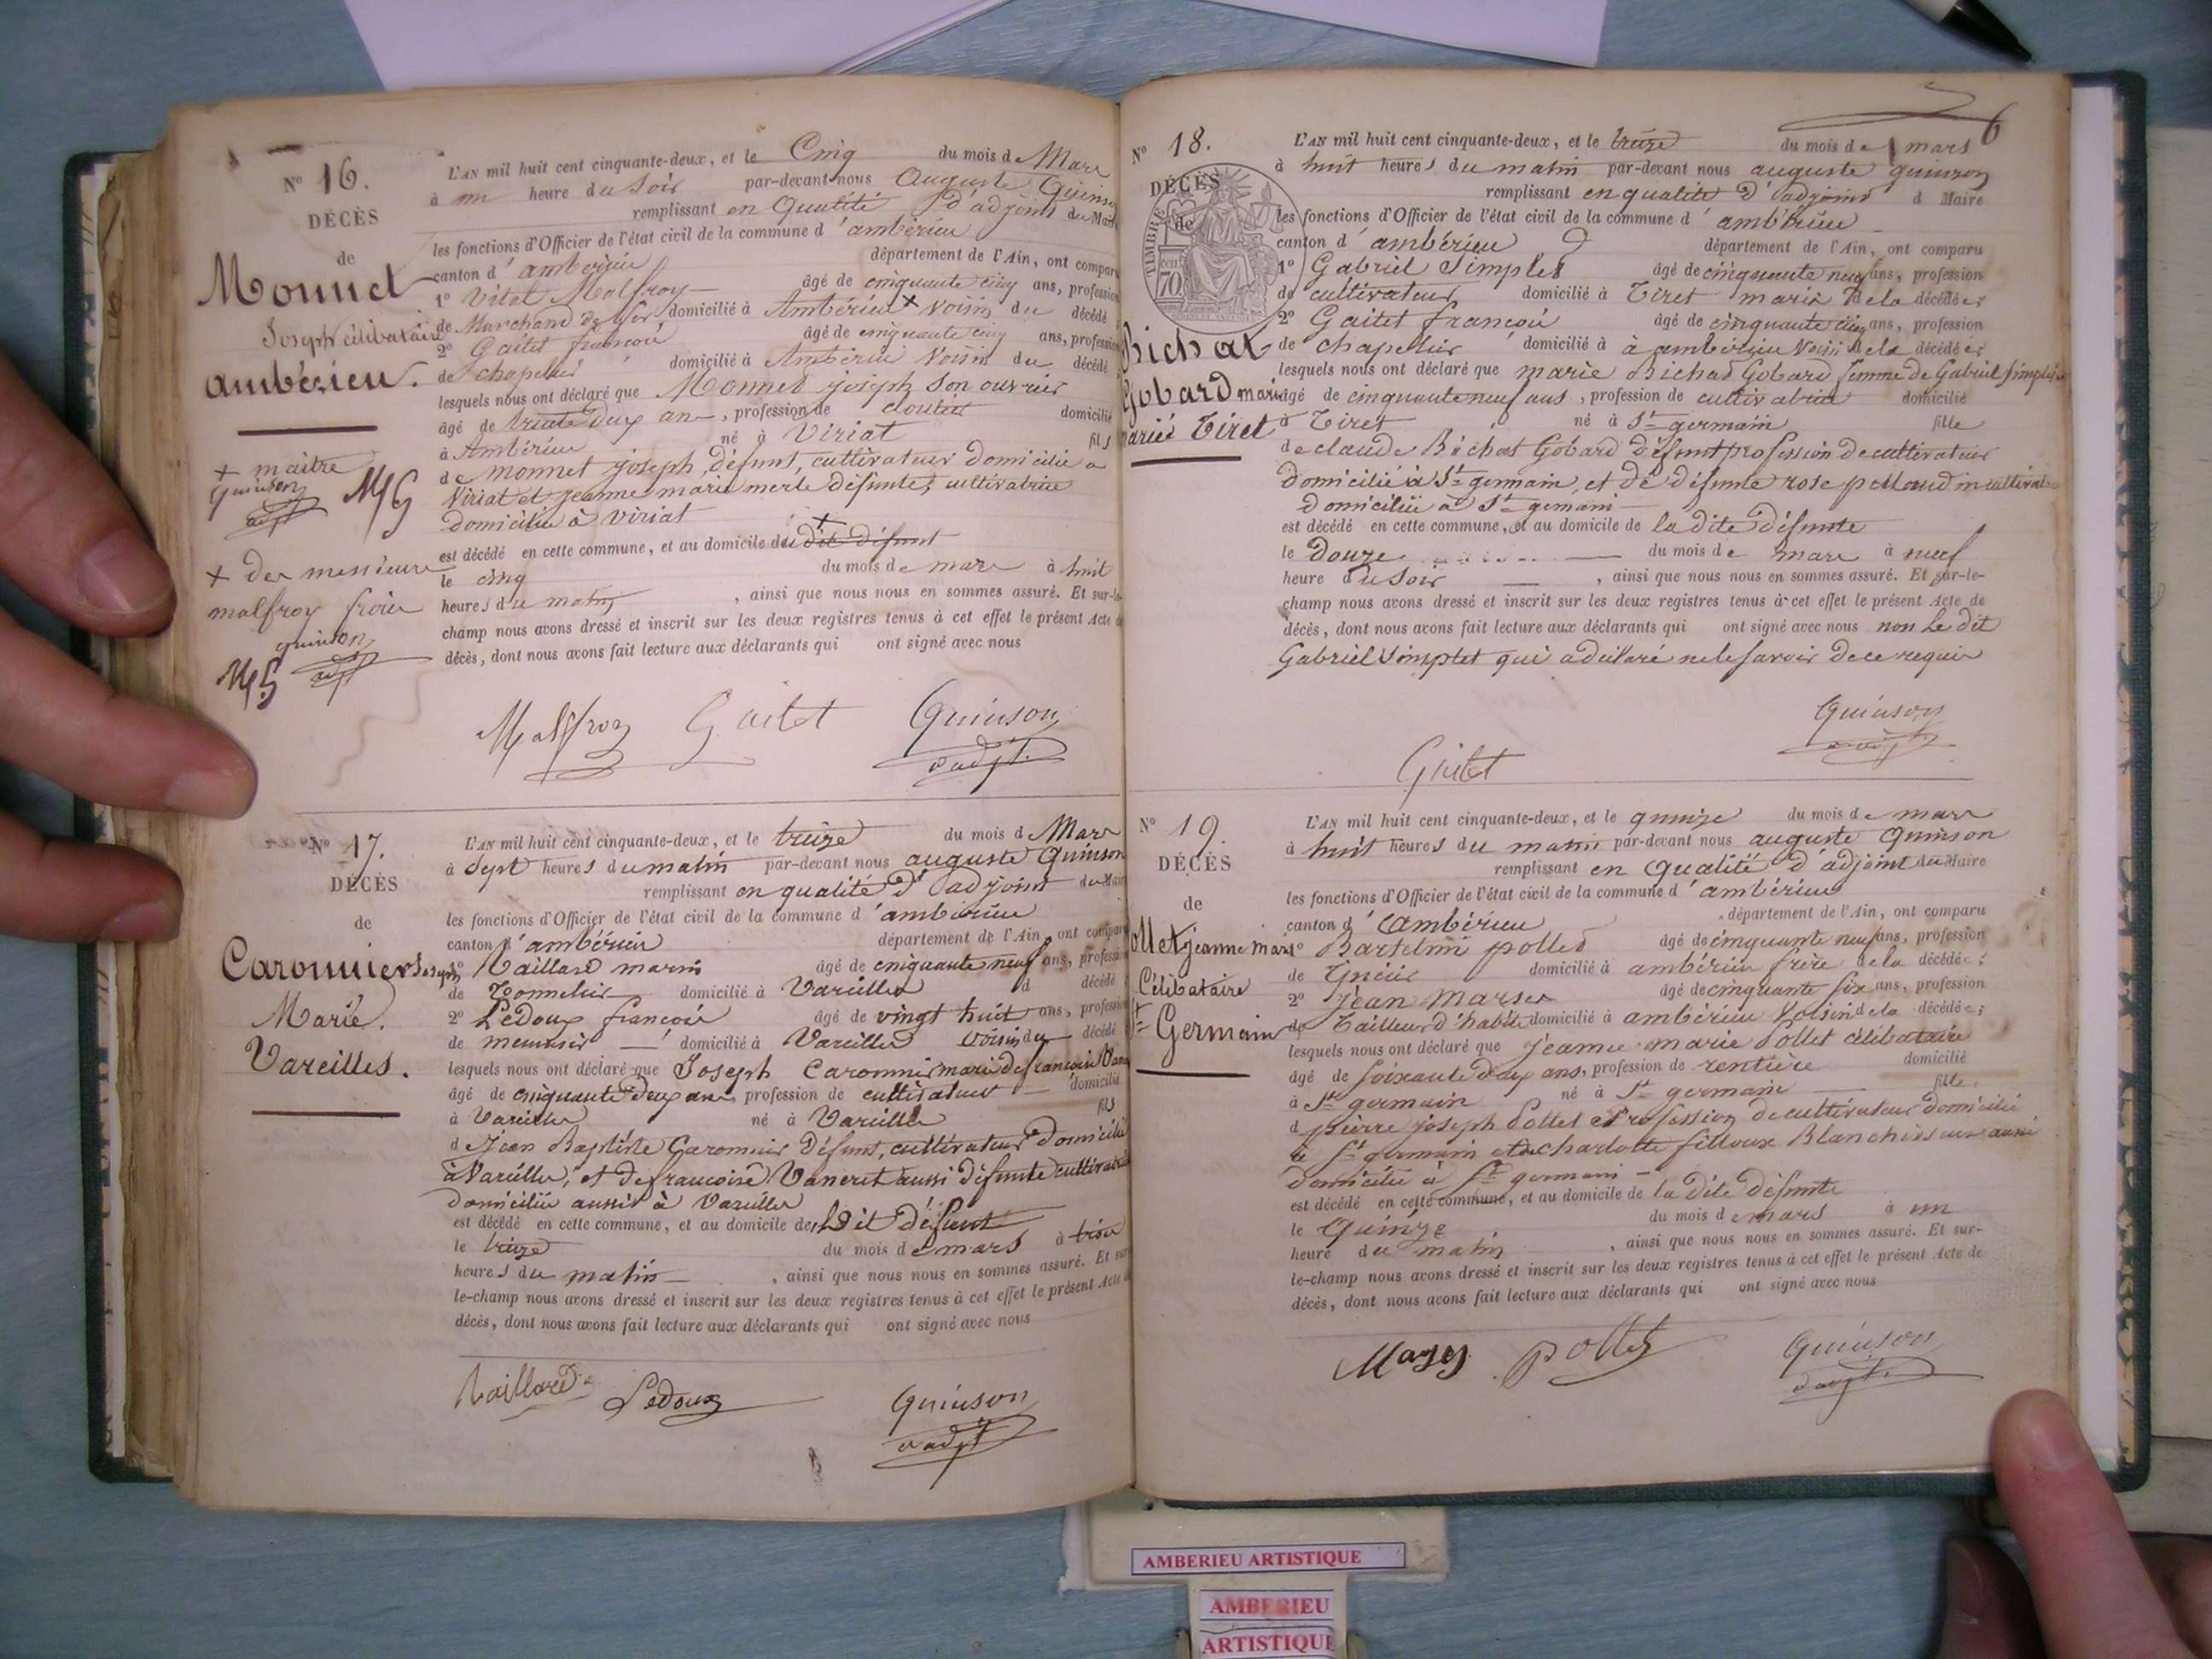 N° 16.
DÉCÈS
de
Monnet
Joseph célibataire
ambérieu.
+ maitre
Quinson
adjt
MG
+ des messieurs
malfroy frère
quinson
adjt
MG
L'AN mil huit cent cinquante-deux, et le Cinq du mois de Mars
à un heure du Soir par-devant nous Auguste Quinson
remplissant en Qualité d'adjoint du Maire
les fonctions d'Officier de l'état civil de la commune d'ambérieu
canton d'ambérieu département de l'Ain, ont comparu
1° Vital Malfroy âgé de cinquante cinq ans, profession
de Marchand de fer domicilié à Ambérieu + voisin du décédé
2° Gaitet francois âgé de cinquante cinq ans, profession
de chapelier domicilié à Ambérieu Voisin du décédé
lesquels nous ont déclaré que Monnet joseph son ouvrier
âgé de trente deux ans, profession de cloutier domicilié
à Ambérieu né à Viriat fils
de monnet joseph, défunt, cultivateur domicilié a
Viriat et jeanne marie merle défunte, cultivatrice
domiciliée à viriat
est décédé en cette commune, et au domicile du + dit défunt
le cinq du mois de mars à huit
heures du matin, ainsi que nous nous en sommes assuré. Et sur-le-
champ nous avons dressé et inscrit sur les deux registres tenus à cet effet le présent Acte de
décès, dont nous avons fait lecture aux déclarants qui ont signé avec nous
Malfroy Gaitet Quinson
adjt.
N° 17.
DÉCÈS
de
Caronnier Joseph
Marié.
Vareilles.
L'AN mil huit cent cinquante-deux, et le treize du mois d Mars
à Sept heures du matin par-devant nous auguste Quinson
remplissant en qualité d'adjoint du Maire
les fonctions d'Officier de l'état civil de la commune d'ambérieu
canton d'ambérieu département de l'Ain, ont comparu
1° Vaillard marin âgé de cinquante neuf ans, profession
de Tonnelier domicilié à Vareilles d décédé
2° Ledoux francois âgé de vingt huit ans, profession
de meunier domicilié à Vareilles voisin du décédé
lesquels nous ont déclaré que Joseph Caronnier mari de francoise
âgé de cinquante deux ans, profession de cultivateur domicilié
à Vareilles né à Vareilles fils
de Jean Baptiste Caronnier défunt, cultivateur domicilié
à Vareilles, et de francoise Vaneret aussi défunte cultivatrice
domiciliée aussi à Vareilles
est décédé en cette commune, et au domicile de Dit défunt
le treize du mois de mars à trois
heures du matin, ainsi que nous nous en sommes assuré. Et sur-
le-champ nous avons dressé et inscrit sur les deux registres tenus à cet effet le présent Acte de
décès, dont nous avons fait lecture aux déclarants qui ont signé avec nous
Vaillard Ledoux Quinson
adjt
6
N° 18.
DÉCÈS
de
TIMBRE
70
cent
Bichat
Gobard marie
mariée Tiret
L'AN mil huit cent cinquante-deux, et le treize du mois de mars
à huit heures du matin par-devant nous auguste quinson
remplissant en qualité d'adjoint d Maire
les fonctions d'Officier de l'état civil de la commune d'ambérieu
canton d'ambérieu département de l'Ain, ont comparu
1° Gabriel Simplet âgé de cinquante neuf ans, profession
de cultivateur domicilié à Tiret mari de la décédée;
2° Gaitet francois âgé de cinquante cinq ans, profession
de chapelier domicilié à à ambérieu Voisin de la décédée;
lesquels nous ont déclaré que marie Bichat Gobard femme de Gabriel Simplet
âgé de cinquante neuf ans, profession de cultivatrice domicilié
à Tiret né à St germain fille
de claude Bichat Gobard défunt profession de cultivateur
domicilié à St germain, et de défunte rose
domiciliée à St germain
est décédé en cette commune, et au domicile de la dite défunte
le douze du mois de mars à neuf
heure du soir, ainsi que nous nous en sommes assuré. Et sur-le-
champ nous avons dressé et inscrit sur les deux registres tenus à cet effet le présent Acte de
décès, dont nous avons fait lecture aux déclarants qui ont signé avec nous non le dit
Gabriel Simplet qui a déclaré ne le savoir de ce requis
Quinson
adjt
Gaitet
N° 19.
DÉCÈS
de
ollet jeanne marie
Célibataire
St Germain
L'AN mil huit cent cinquante-deux, et le quinze du mois de mars
à huit heures du matin par-devant nous auguste Quinson
remplissant en Qualité d'adjoint du Maire
les fonctions d'Officier de l'état civil de la commune d'ambérieu
canton d'ambérieu département de l'Ain, ont comparu
1° Bartelmi pollet âgé de cinquante neuf ans, profession
de domicilié à ambérieu frère de la décédée;
2° Jean âgé de cinquante six ans, profession
de Tailleur d'habits domicilié à ambérieu Voisin de la décédée;
lesquels nous ont déclaré que Jeanne marie Pollet célibataire
âgé de soixante deux ans, profession de rentière domicilié
à St germain né à St germain fille
d pierre joseph Pollet profession de cultivateur domicilié
à St germain et de charlotte filloux Blanchisseuse aussi
domiciliée à St germain
est décédé en cette commune, et au domicile de la dite défunte
le Quinze du mois de mars à un
heure du matin, ainsi que nous nous en sommes assuré. Et sur-
le-champ nous avons dressé et inscrit sur les deux registres tenus à cet effet le présent Acte de
décès, dont nous avons fait lecture aux déclarants qui ont signé avec nous
pollet Quinson
adjt.
AMBERIEU ARTISTIQUE
AMBERIEU
ARTISTIQUE